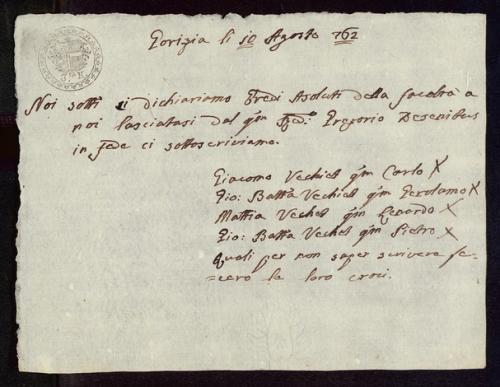 Gorizia li 10 Agosto 762
Noi sotti si dichiariamo Eredi Asoluti della facoltà a
noi lasciatasi dal qm Gregorio Desenibus
in fede ci sottoscriviamo.
Giacomo Vechiet qm Carlo X
Gio: Batta Vechiet qm Gerolamo X
Mattia Vechet qm Leonardo X
Gio: Batta Vechet qm Pietro X
quali per non saper scrivere fe=
=cero la loro croci.